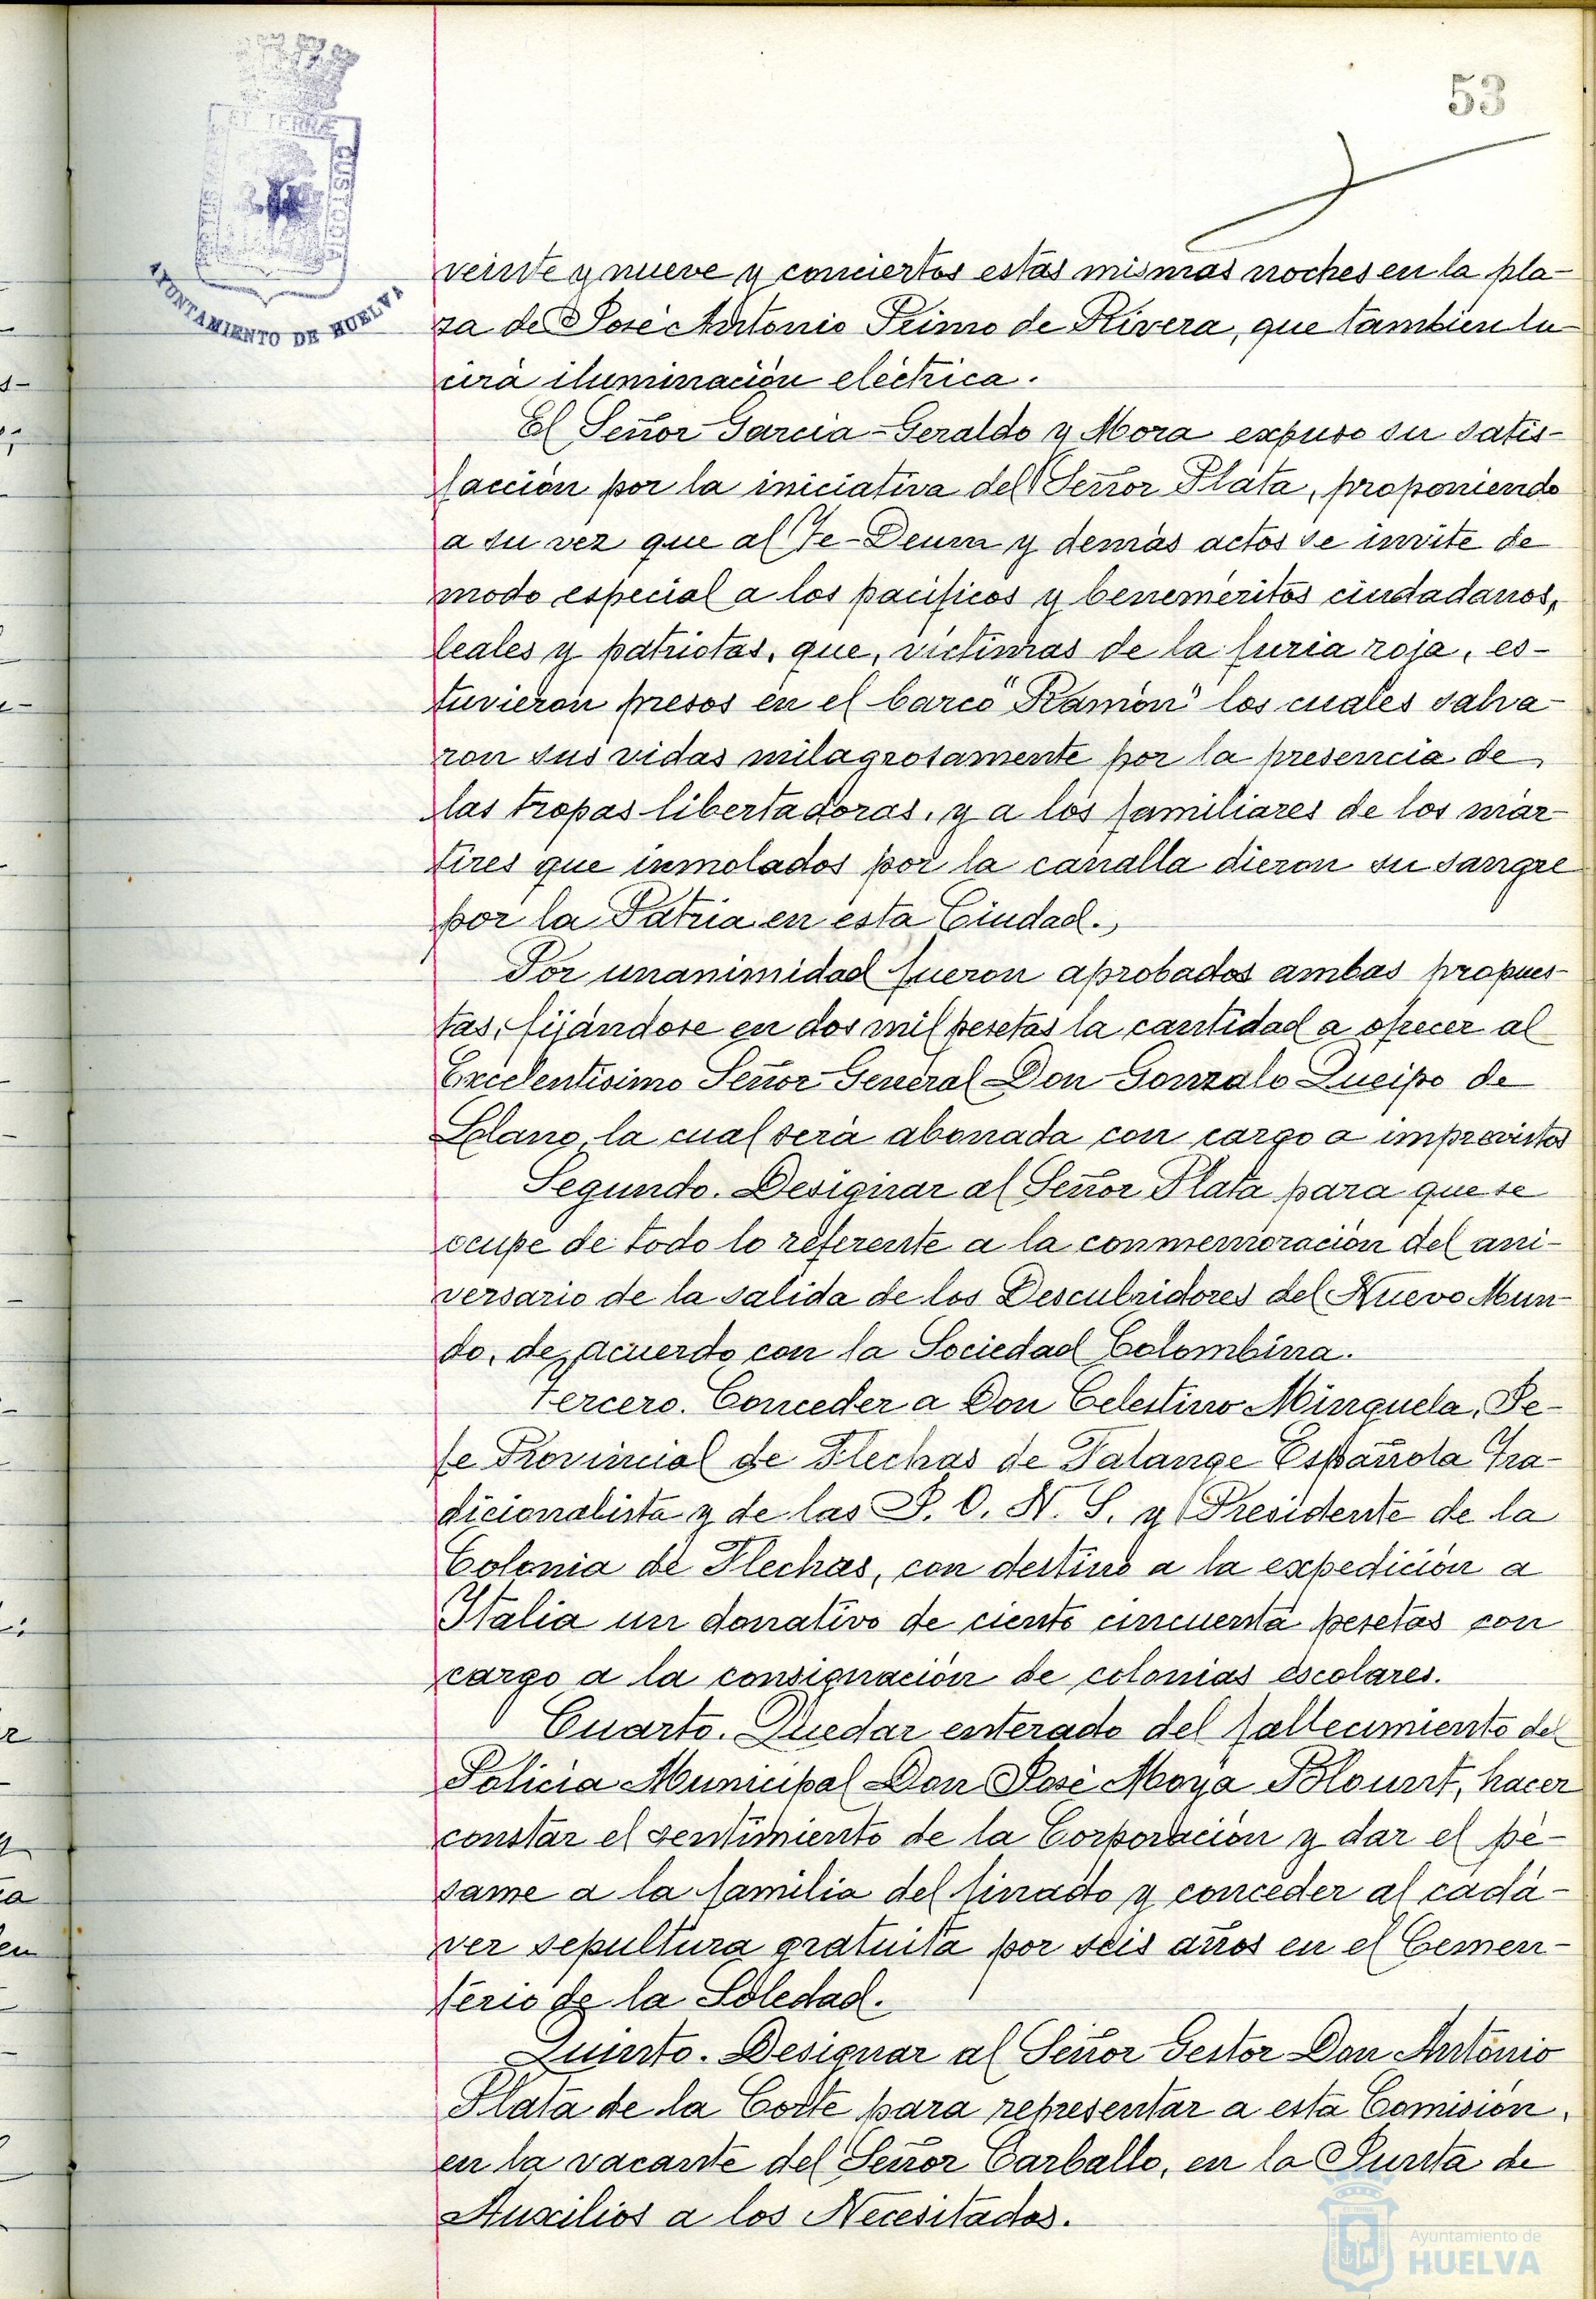 53
ET TERRÆ
CUSTODIA
AYUNTAMIENTO DE HUELVA
veinte y nueve y conciertos estas mismas noches en la pla-
za de José Antonio Primo de Rivera, que tambien lu-
cirá iluminación eléctrica.
El Señor Garcia-Geraldo y Mora expuso su satis-
facción por la iniciativa del Señor Plata, proponiendo
a su vez que al Te-Deum y demás actos se invite de
modo especial a los pacificos y beneméritos ciudadanos,
leales y patriotas, que, victimas de la furia roja, es-
tuvieron presos en el barco "Ramón" los cuales salva-
ron sus vidas milagrosamente por la presencia de
las tropas libertadoras, y a los familiares de los már-
tires que inmolados por la canalla dieron su sangre
por la Patria en esta Ciudad.
Por unanimidad fueron aprobados ambas propues-
tas, fijándose en dos mil pesetas la cantidad a ofrecer al
Excelentisimo Señor General Don Gonzalo Queipo de
Llano, la cual será abonada con cargo a imprevistos
Segundo. Designar al Señor Plata para que se
ocupe de todo lo referente a la conmemoración del ani-
versario de la salida de los Descubridores del Nuevo Mun-
do, de acuerdo con la Sociedad Colombina.
Tercero. Conceder a Don Celestino Minguela, Je-
fe Provincial de Flechas de Falange Española Tra-
dicionalista y de las J. O. N. S. y Presidente de la
Colonia de Flechas, con destino a la expedición a
Italia un donativo de ciento cincuenta pesetas con
cargo a la consignación de colonias escolares.
Cuarto. Quedar enterado del fallecimiento del
Policia Municipal Don José Moya Blount, hacer
constar el sentimiento de la Corporación y dar el pé-
same a la familia del finado y conceder al cadá-
ver sepultura gratuita por seis años en el Cemen-
terio de la Soledad.
Quinto. Designar al Señor Gestor Don Antonio
Plata de la Corte para representar a esta Comisión,
en la vacante del Señor Carballo, en la Junta de
Auxilios a los Necesitados.
Ayuntamiento de
HUELVA